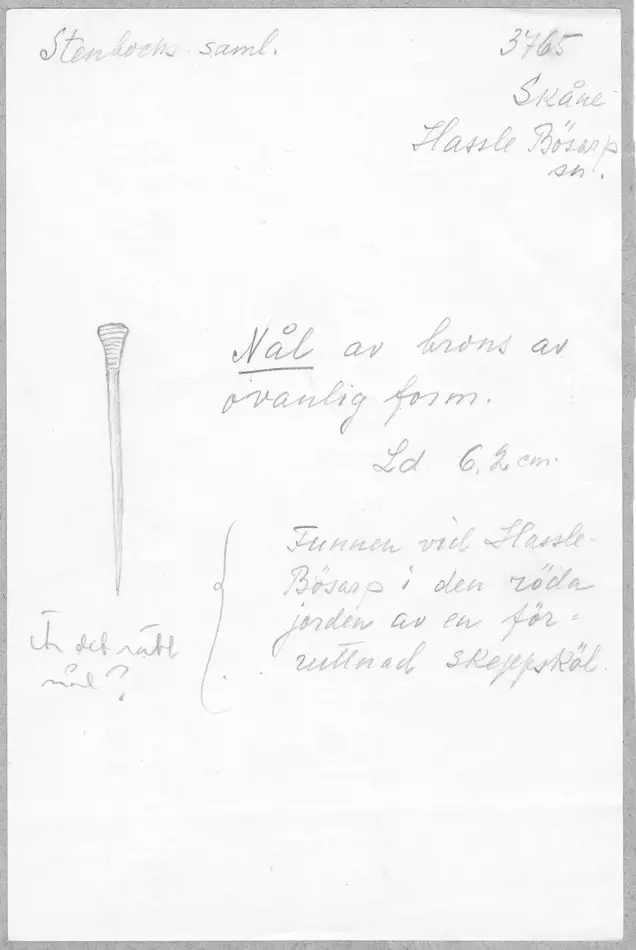 Stenbocks saml.
3765
Skåne
Hassle Bösarp
sn.
Nål av brons av
ovanlig form.
Ld. 6,2 cm.
Funnen vid Hassle-
Bösarp i den röda
jorden av en för-
ruttnad skeppsköl.
Är det rätt
nål?